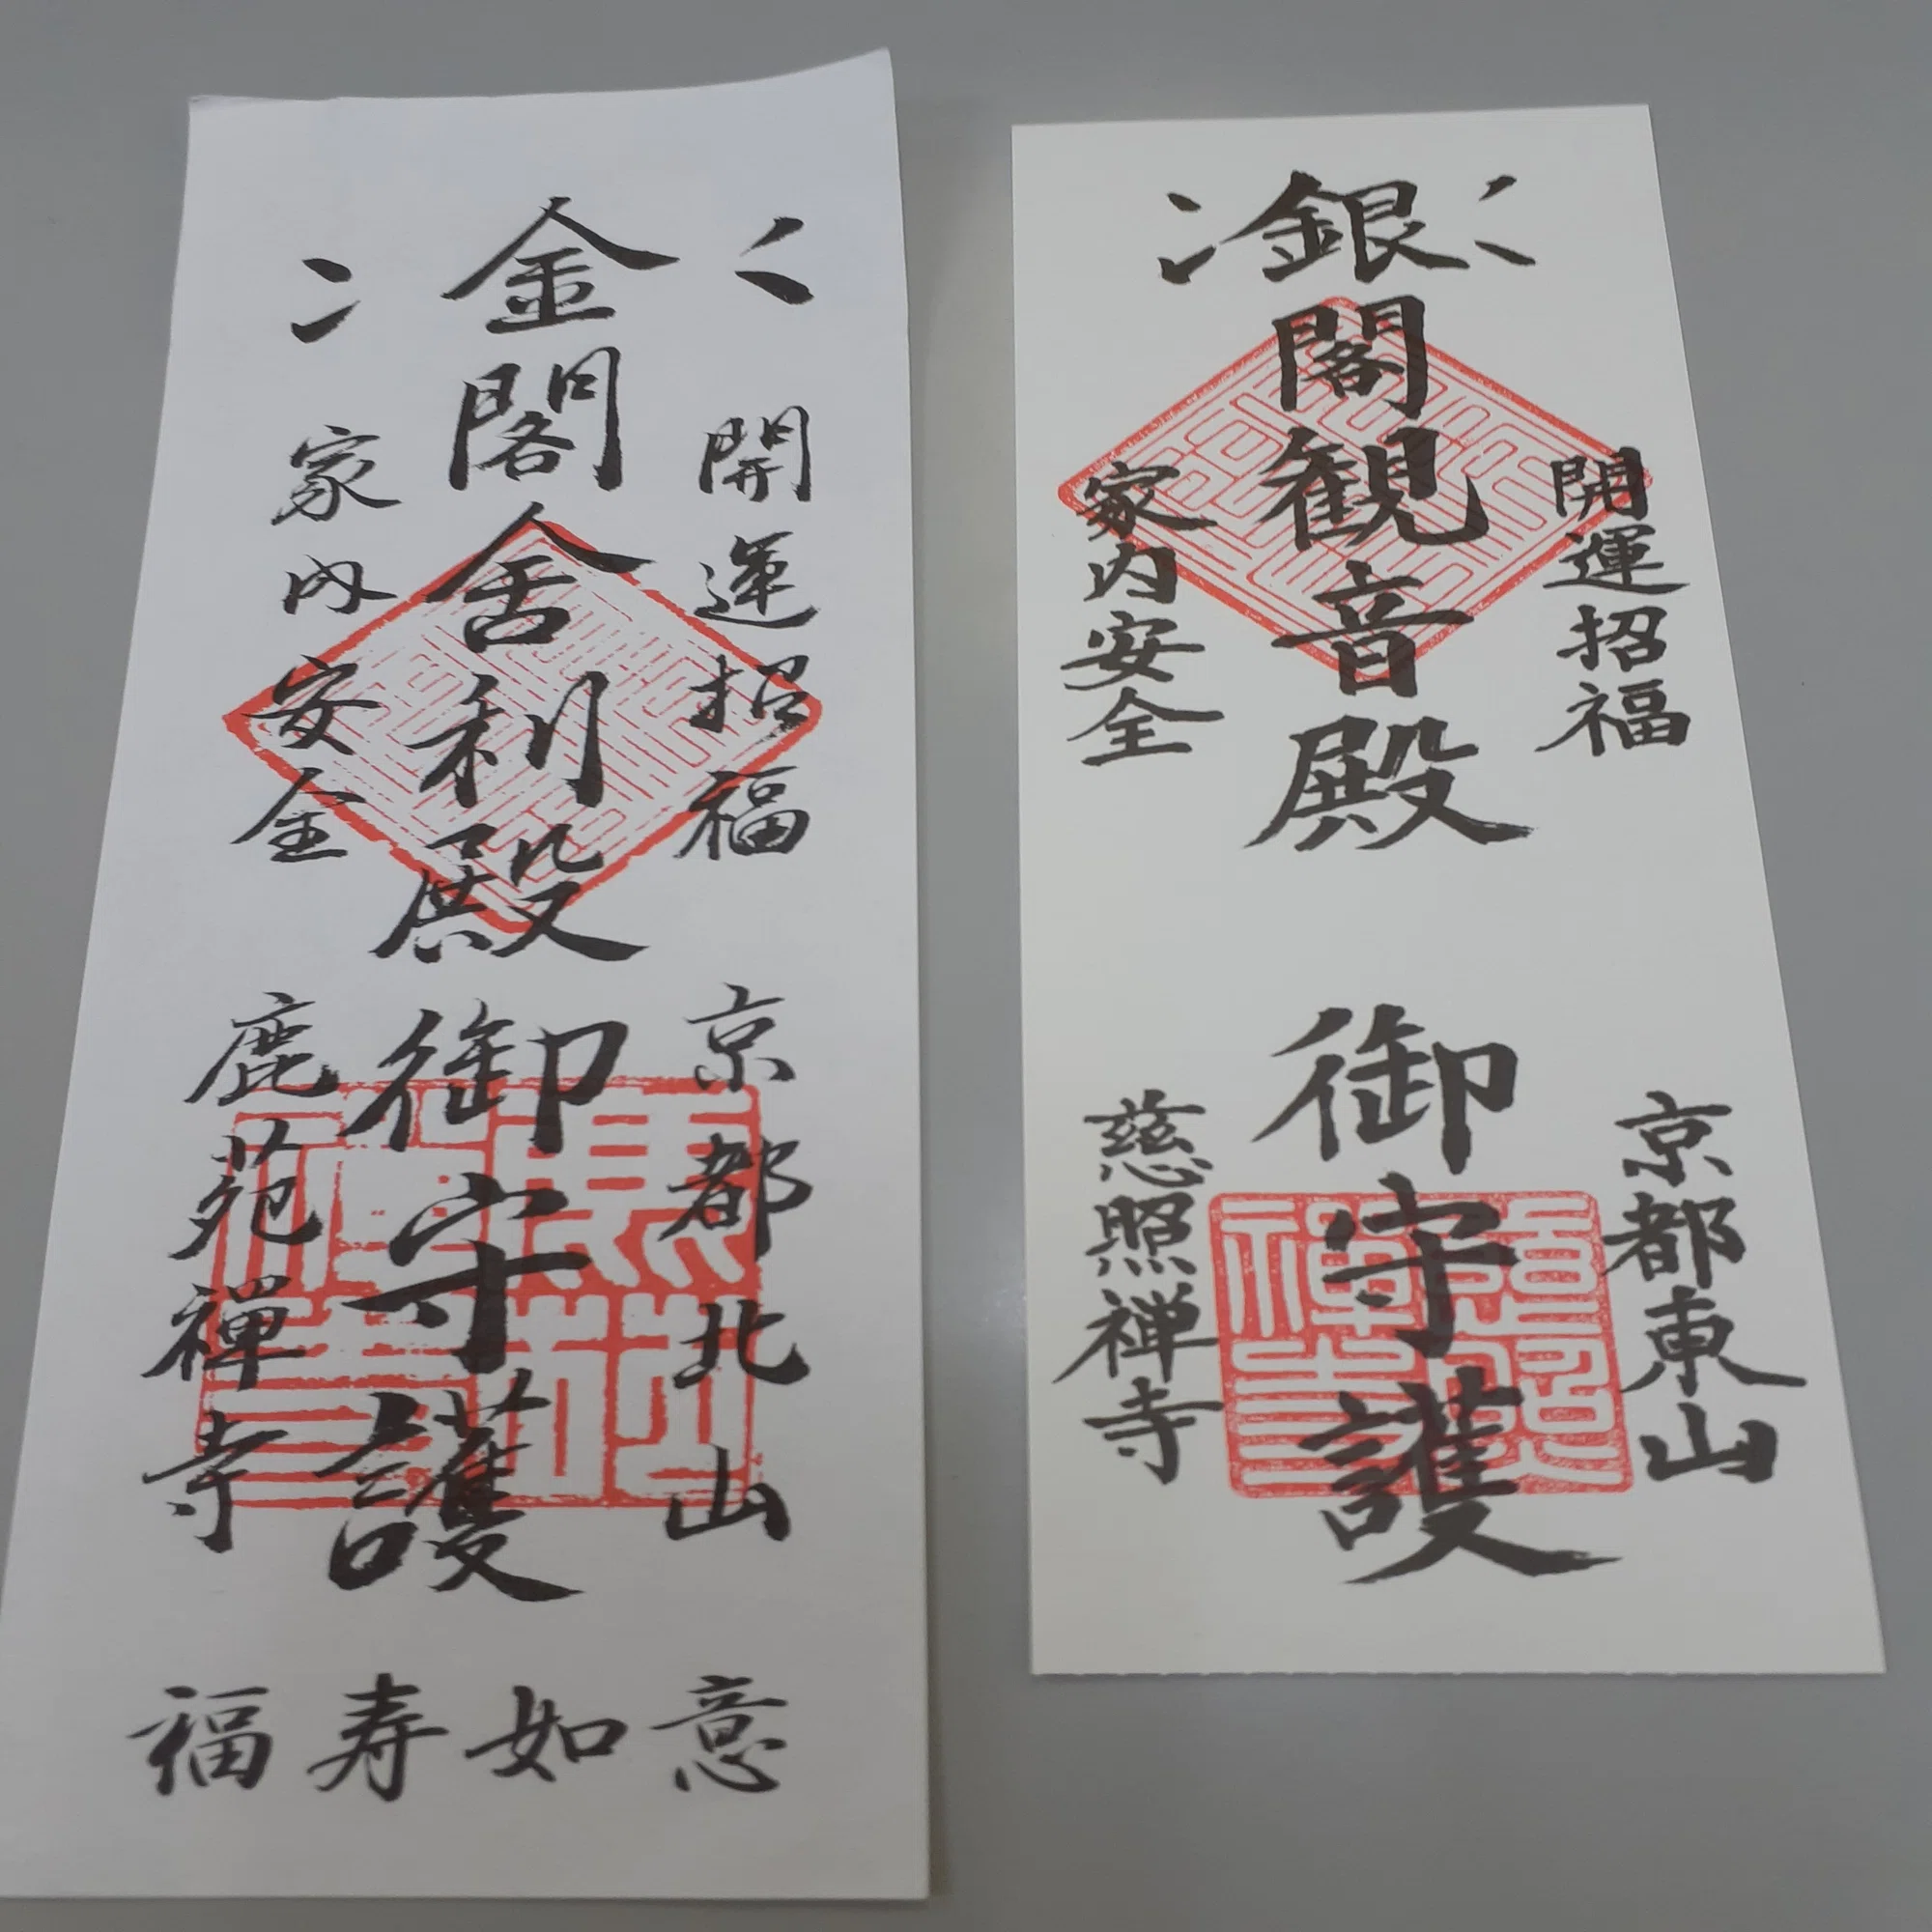 金閣舎利殿御守護
開運招福
家内安全
京都北山
鹿苑禅寺
意如寿福
銀閣観音殿
御守護
開運招福
家内安全
京都東山
慈照禅寺